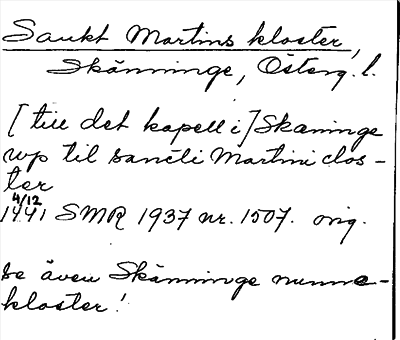 Sankt Martins kloster,
Skänninge, Österg. l.
[till det kapell i] Skæninge
up til sancti Martini clos-
ter
4/12
1441 SMR 1937 nr. 1507. orig.
se även Skänninge nunne-
kloster!